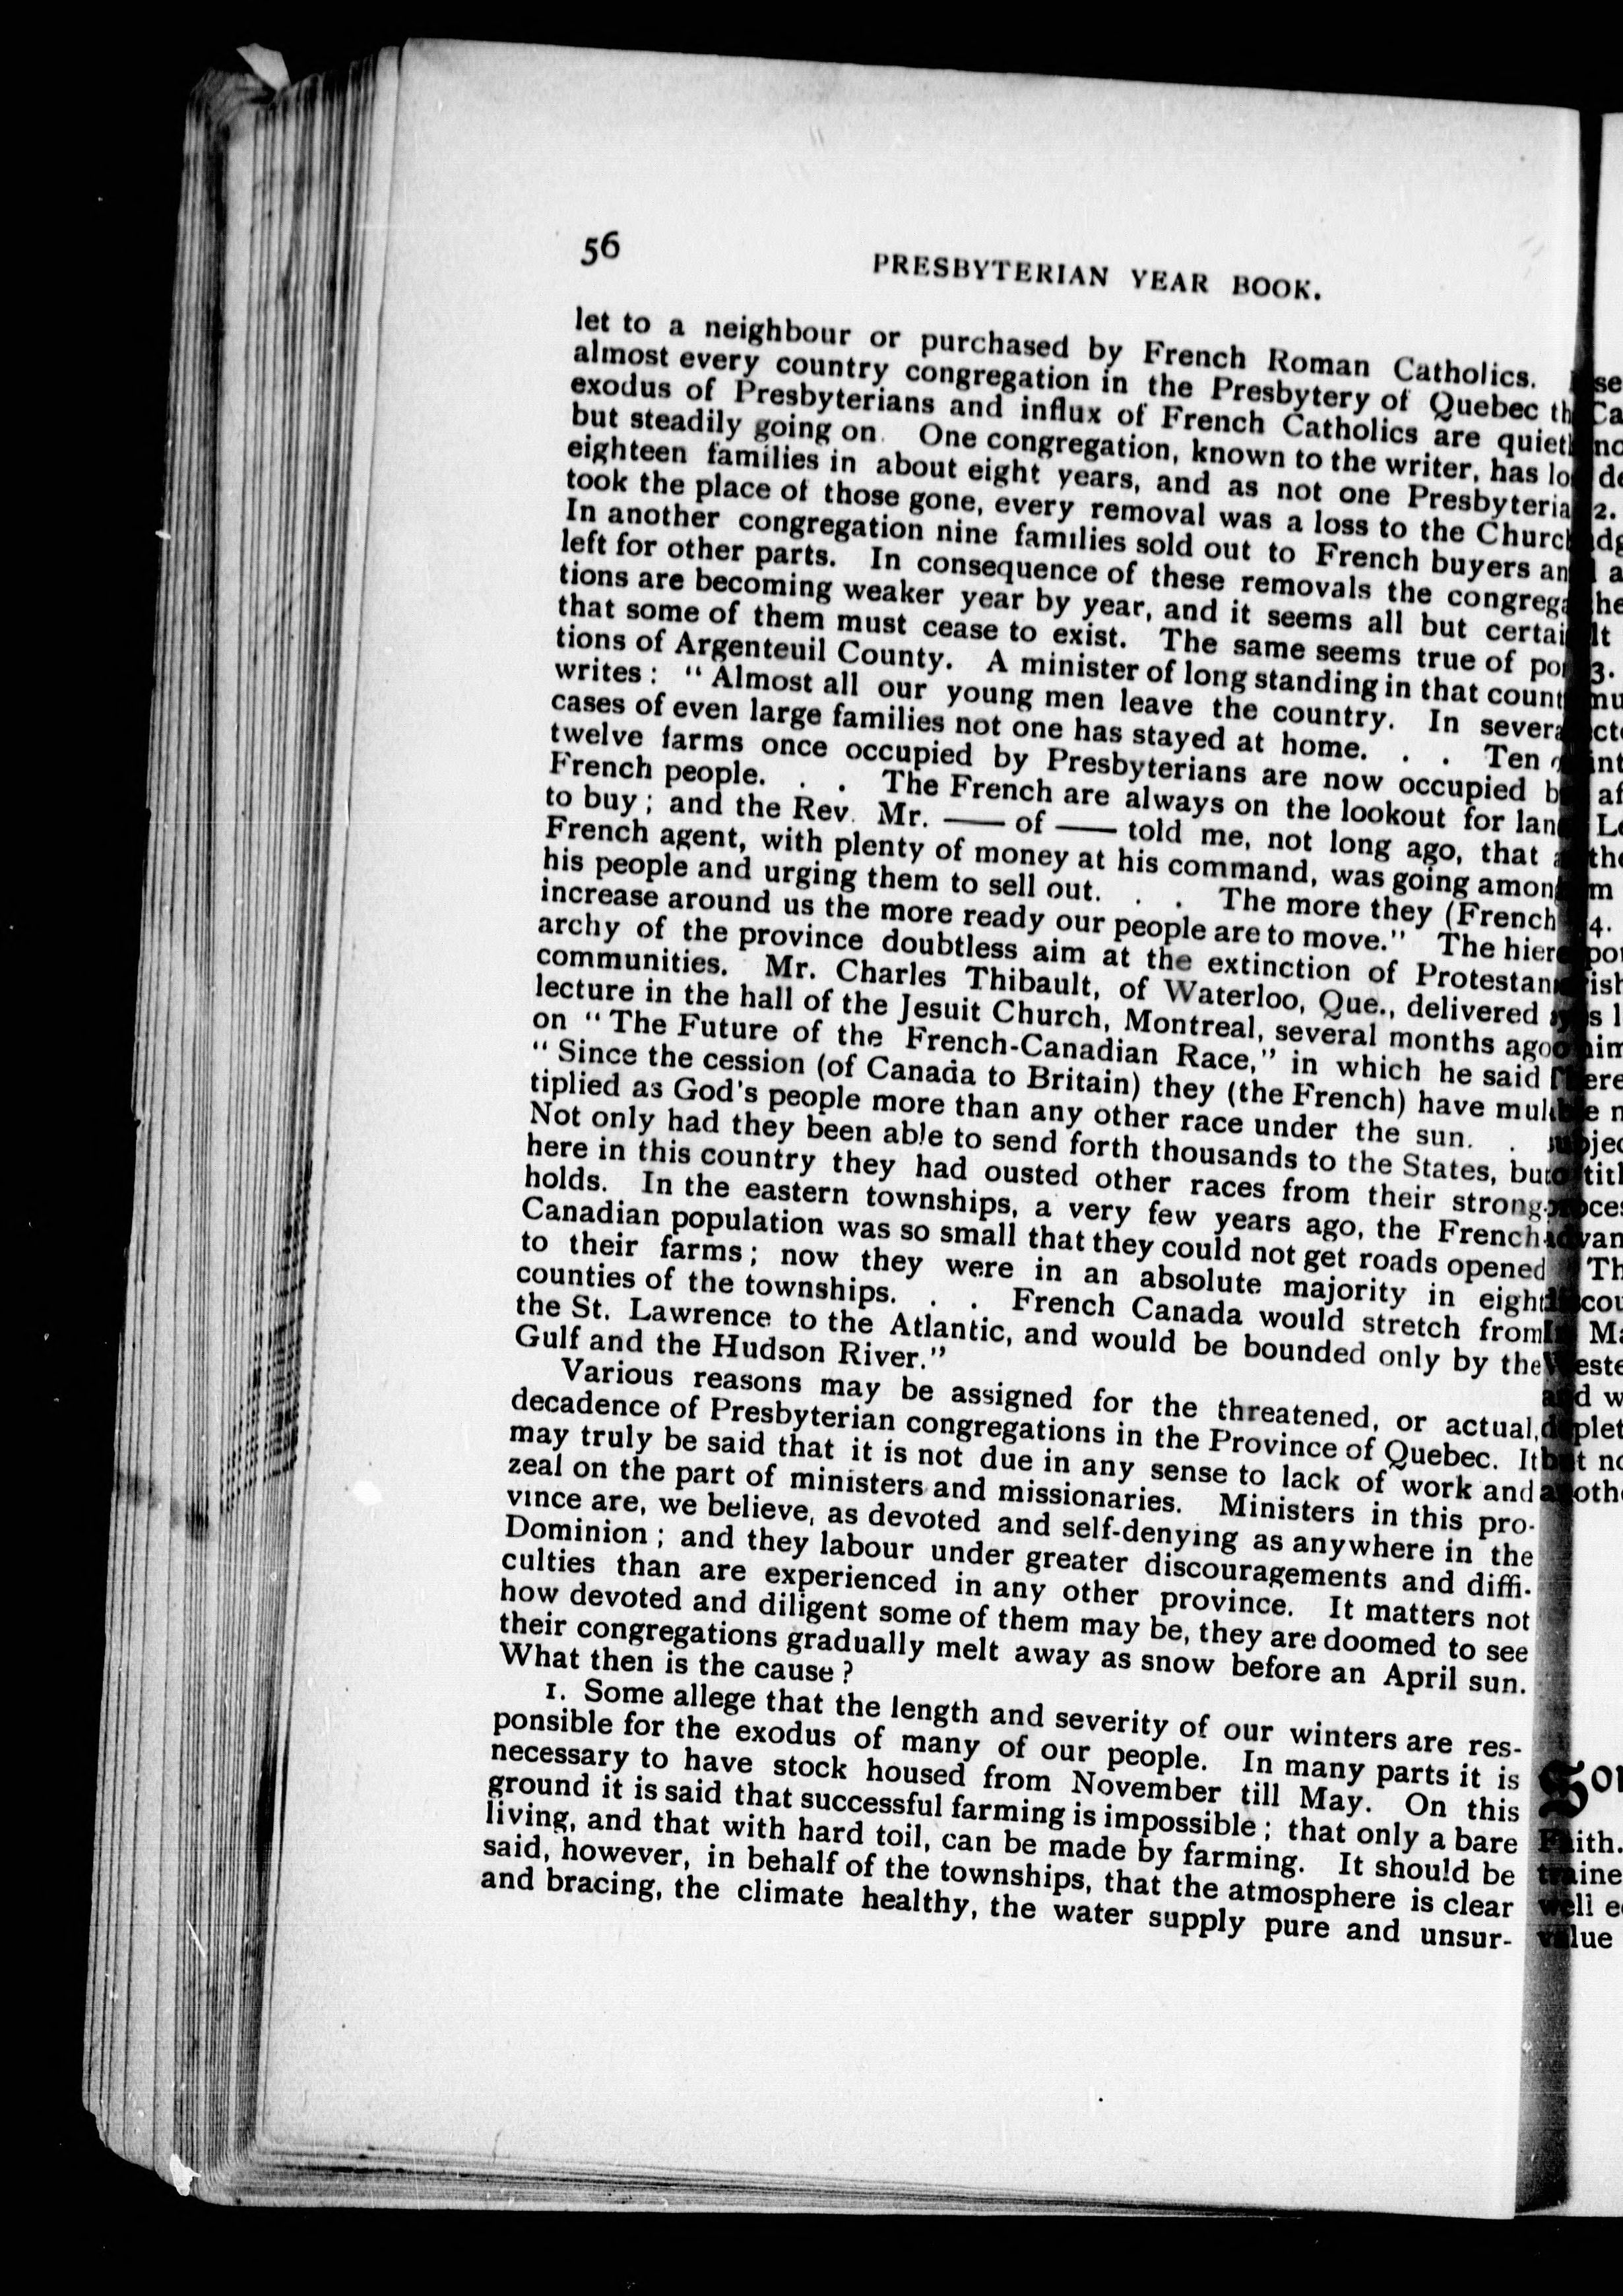 56
PRESBYTERIAN YEAR BOOK.
let to a neighbour or purchased by French Roman Catholics.
almost every country congregation in the Presbytery of Quebec th
exodus of Presbyterians and influx of French Catholics are quiet
but steadily going on. One congregation, known to the writer, has lo
eighteen families in about eight years, and as not one Presbyteria
took the place of those gone, every removal was a loss to the Churc
In another congregation nine families sold out to French buyers an
left for other parts. In consequence of these removals the congrega
tions are becoming weaker year by year, and it seems all but certai
that some of them must cease to exist. The same seems true of por
tions of Argenteuil County. A minister of long standing in that count
writes: "Almost all our young men leave the country. In severa
cases of even large families not one has stayed at home. . . Ten
twelve farms once occupied by Presbyterians are now occupied b
French people. . . The French are always on the lookout for lan
to buy; and the Rev. Mr. —— of —— told me, not long ago, that a
French agent, with plenty of money at his command, was going among
his people and urging them to sell out. . . The more they (French
increase around us the more ready our people are to move." The hier
archy of the province doubtless aim at the extinction of Protestan
communities. Mr. Charles Thibault, of Waterloo, Que., delivered
lecture in the hall of the Jesuit Church, Montreal, several months ago
on "The Future of the French-Canadian Race," in which he said
"Since the cession (of Canada to Britain) they (the French) have mul
tiplied as God's people more than any other race under the sun. .
Not only had they been able to send forth thousands to the States, but
here in this country they had ousted other races from their strong-
holds. In the eastern townships, a very few years ago, the French-
Canadian population was so small that they could not get roads opened
to their farms; now they were in an absolute majority in eight
counties of the townships. . . French Canada would stretch from
the St. Lawrence to the Atlantic, and would be bounded only by the
Gulf and the Hudson River."
Various reasons may be assigned for the threatened, or actual,
decadence of Presbyterian congregations in the Province of Quebec. It
may truly be said that it is not due in any sense to lack of work and
zeal on the part of ministers and missionaries. Ministers in this pro-
vince are, we believe, as devoted and self-denying as anywhere in the
Dominion; and they labour under greater discouragements and diffi-
culties than are experienced in any other province. It matters not
how devoted and diligent some of them may be, they are doomed to see
their congregations gradually melt away as snow before an April sun.
What then is the cause?
1. Some allege that the length and severity of our winters are res-
ponsible for the exodus of many of our people. In many parts it is
necessary to have stock housed from November till May. On this
ground it is said that successful farming is impossible; that only a bare
living, and that with hard toil, can be made by farming. It should be
said, however, in behalf of the townships, that the atmosphere is clear
and bracing, the climate healthy, the water supply pure and unsur-